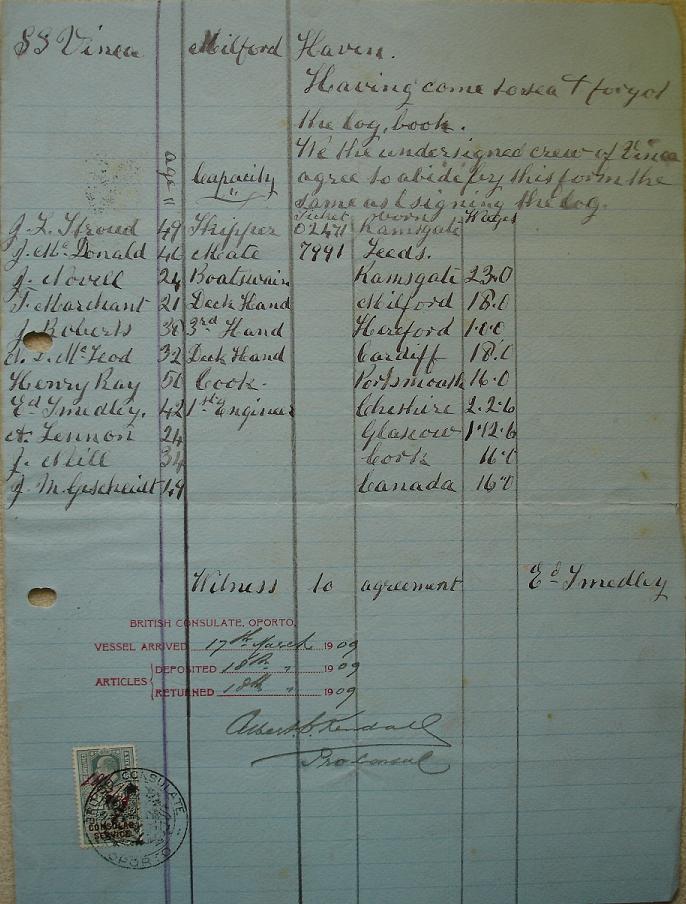 SS Vinca Milford Haven.
Having come to sea & forgot
the log book.
We the undersigned crew of Vinca
age Capacity agree to abide by this form the
same as signing the log.
Ticket born Wages
J. Stroud 49 Skipper 02471 Ramsgate
J. McDonald 40 Mate 7991 Leeds.
J. Novell 24 Boatswain Ramsgate 23.0
Marchant 21 Deck Hand Milford 18.0
J. Roberts 38 3rd Hand Hereford 1.0.0
McLeod 32 Deck Hand Cardiff 18.0
Henry Ray 50 Cook. Portsmouth 16.0
Ed Smedley. 42 1st engineer Cheshire 2.2.6
A. Lennon 24 Glascow 1.12.6
J. Mill 34 Cork 16.0
J. M. 49 Canada 16.0
Witness to agreement Ed Smedley
BRITISH CONSULATE, OPORTO,
VESSEL ARRIVED 17th March 1909
ARTICLES
DEPOSITED 18th " 1909
RETURNED 18th " 1909
Albert C. Kendall
Pro Consul
BRITISH CONSULATE
CONSULAR
SERVICE
OPORTO